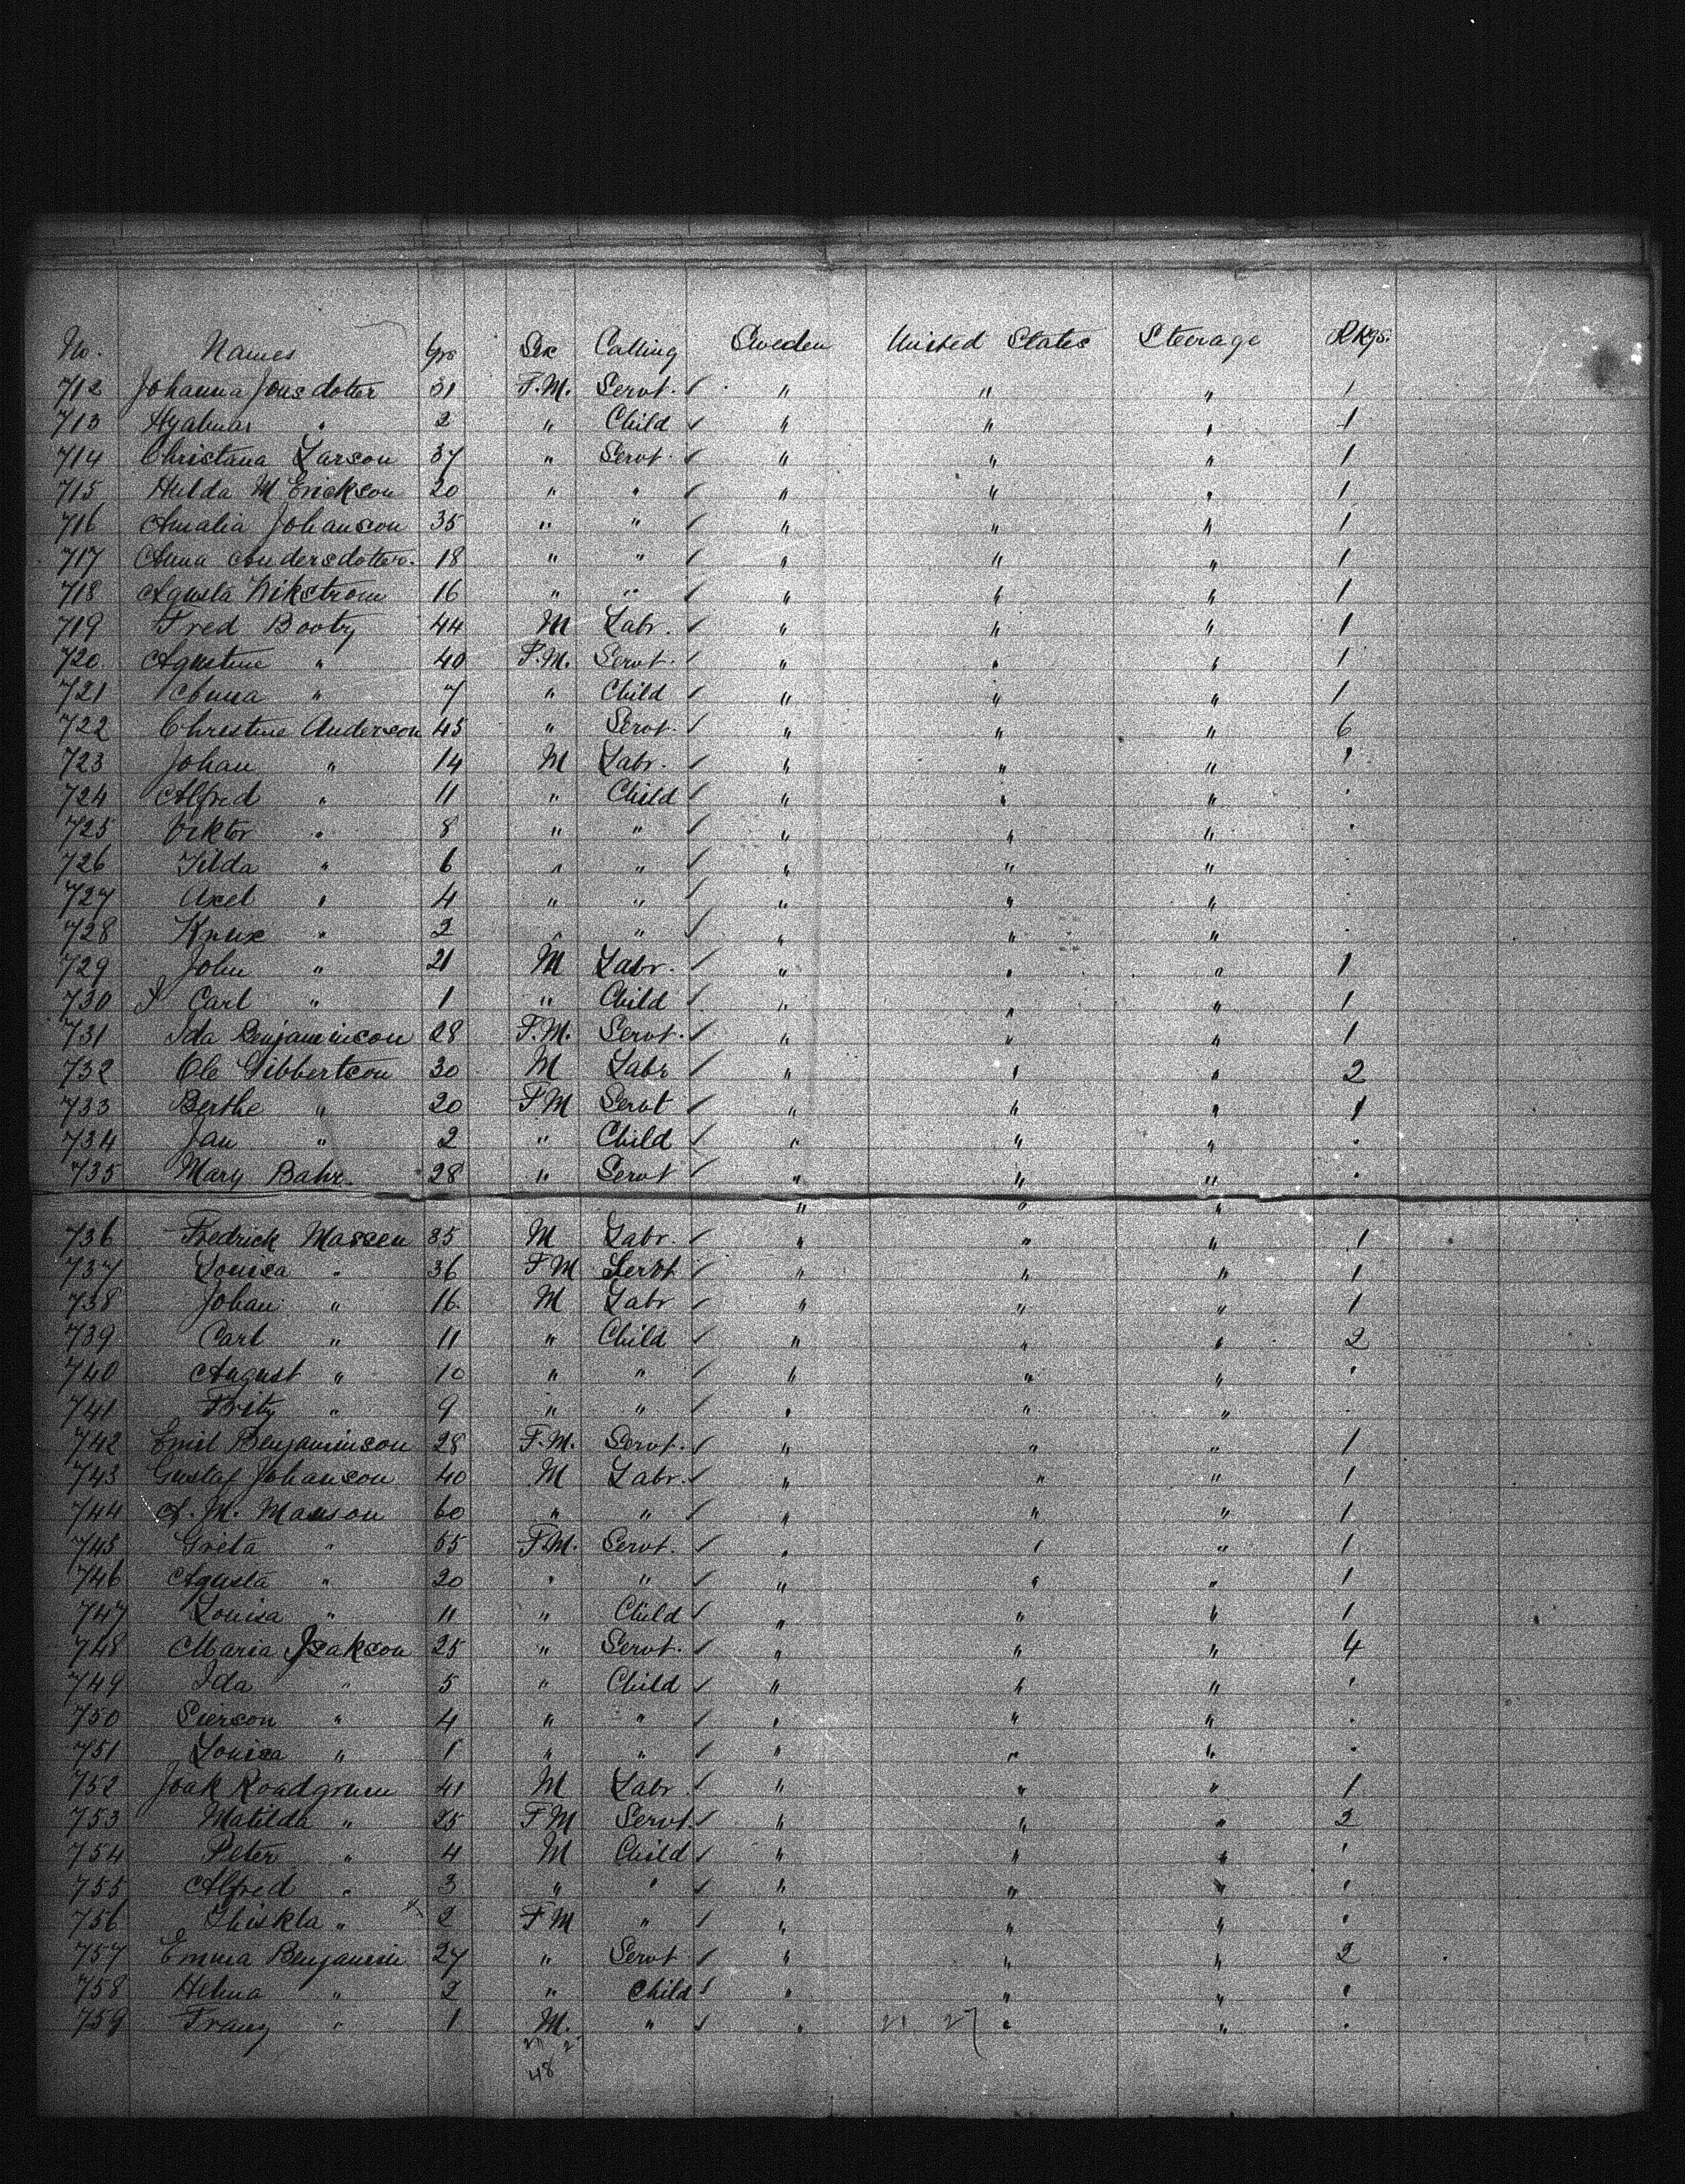 No. Names Yrs Sex Calling Sweden United States Steerage Pkgs.
712 Johanna Jonsdotter 31 F.M. Servt. ✓ " " " 1
713 Hyalmar " 2 " Child ✓ " " " 1
714 Christana Larson 37 " Servt. ✓ " " " 1
715 Hulda M Erickson 20 " " ✓ " " " 1
716 Amalia Johanson 35 " " ✓ " " " 1
717 Anna Andersdotter. 18 " " ✓ " " " 1
718 Agusta Wikstrom 16 " " ✓ " " " 1
719 Fred Booty 44 M Labr. ✓ " " " 1
720 Agustine " 40 F.M. Servt. ✓ " " " 1
721 Anna " 7 " Child ✓ " " " 1
722 Christine Anderson 45 " Servt. ✓ " " " 6
723 Johan " 14 M Labr. ✓ " " " '
724 Alfred " 11 " Child ✓ " " " '
725 Viktor " 8 " " ✓ " " " '
726 Tilda " 6 " " ✓ " " "
727 Axel " 4 " " ✓ " " " '
728 Knux " 2 " " ✓ " " " '
729 John " 21 M Labr. ✓ " " " 1
730 Carl " 1 " Child ✓ " " " 1
731 Ida Benjaminson 28 F.M. Servt. ✓ " " " 1
732 Ole Gibbertson 30 M Labr ✓ " " " 2
733 Berthe " 20 FM Servt ✓ " " " 1
734 Jan " 2 " Child ✓ " " " '
735 Mary Bahr. 28 " Servt ✓ " " " '
" " "
736 Fredrick Massen 35 M Labr. ✓ " " " 1
737 Louisa " 36 FM Servt ✓ " " " 1
738 Johan " 16 M Labr ✓ " " " 1
739 Carl " 11 " Child ✓ " " " 2
740 August " 10 " " ✓ " " " '
741 Fritz " 9 " " ✓ " " " '
742 Emil Benjaminson 28 F.M. Servt. ✓ " " " 1
743 Gustaf Johanson 40 M Labr. ✓ " " " 1
744 A. M. Manson 60 " " ✓ " " " 1
745 Greta " 55 F.M. Servt. ✓ " " " 1
746 Agusta " 20 " " ✓ " " " 1
747 Louisa " 11 " Child ✓ " " " 1
748 Maria Isakson 25 " Servt. ✓ " " " 4
749 Ida " 5 " Child ✓ " " " '
750 Pierson " 4 " " ✓ " " " '
751 Louisa " 1 " " ✓ " " " '
752 Joak Roadgrum 41 M Labr. ✓ " " " 1
753 Matilda " 25 FM Servt. ✓ " " " 2
754 Peter " 4 M Child ✓ " " " '
755 Alfred " 3 " " ✓ " " " '
756 Thiskla " x 2 FM " ✓ " " " '
757 Emma Benjamin 27 " Servt ✓ " " " 2
758 Helma " 2 " Child ✓ " " " '
759 Franz " 1 M. " ✓ " 21 27 " " '
48